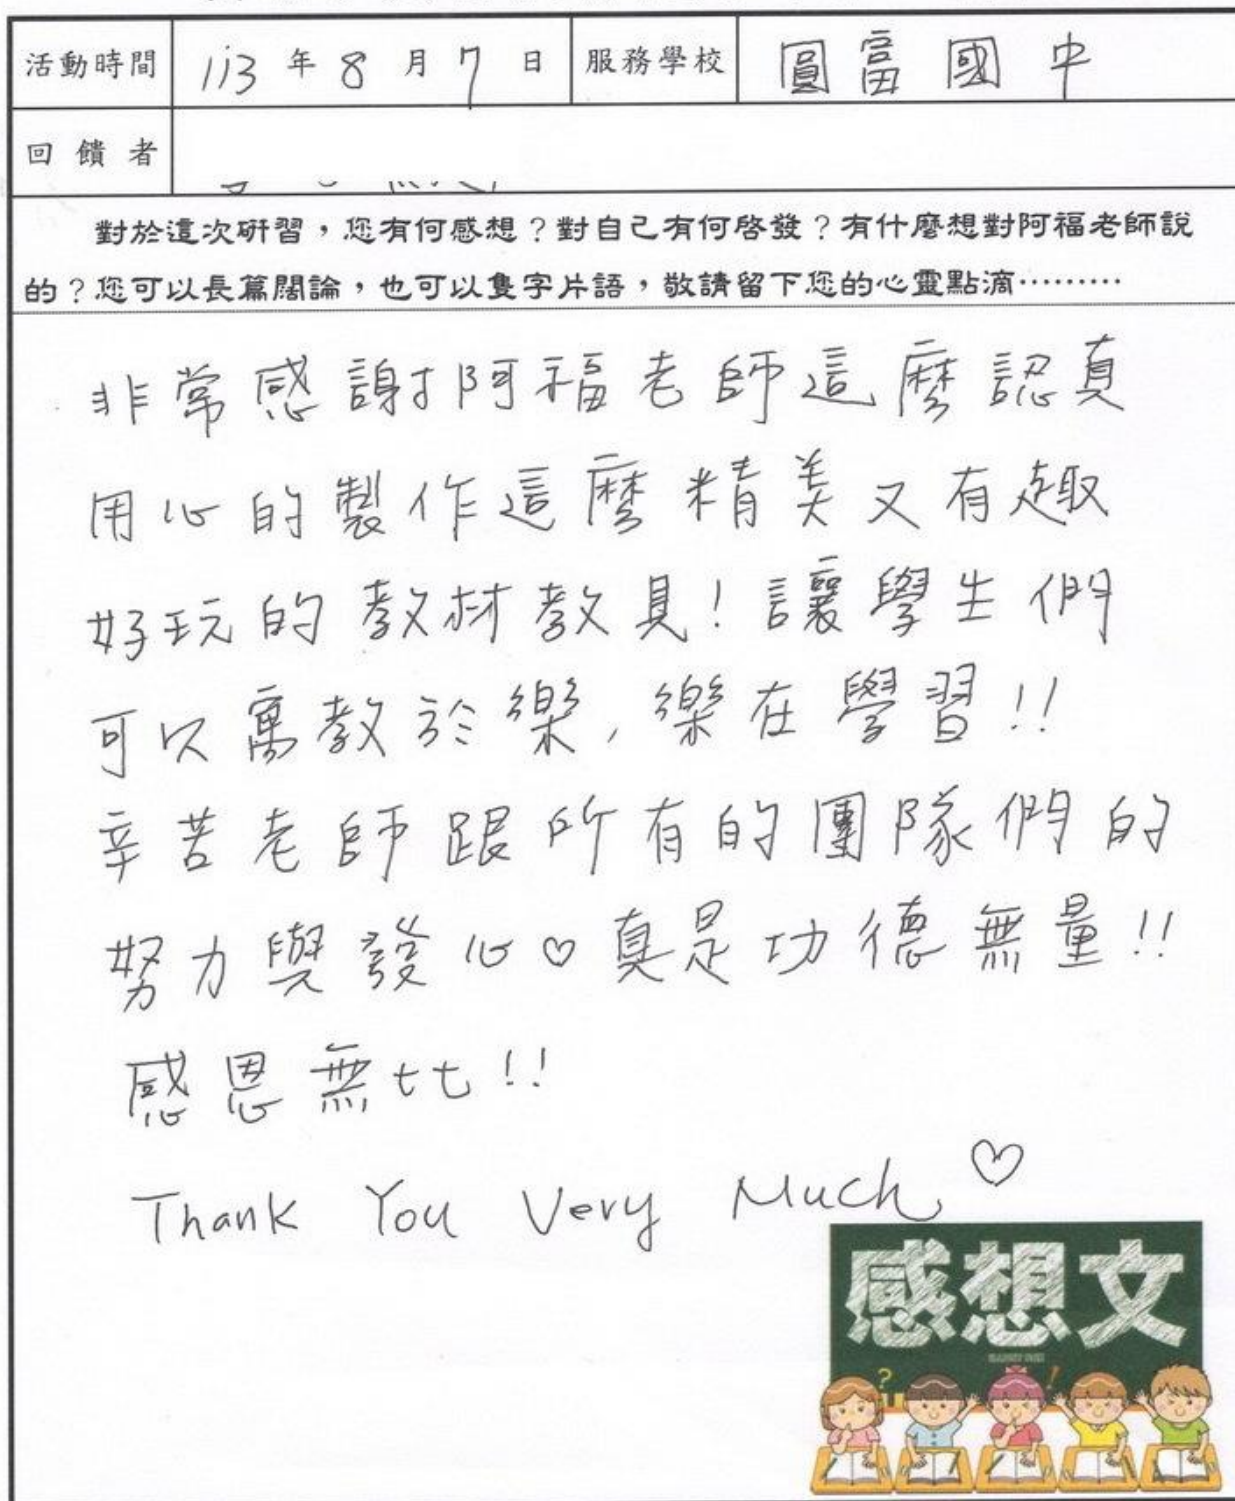 活動時間 113年8月7日 服務學校 圓富國中
回饋者
對於這次研習，您有何感想？對自己有何啓發？有什麼想對阿福老師說
的？您可以長篇闊論，也可以隻字片語，敬請留下您的心靈點滴………
非常感謝阿福老師這麼認真
用心的製作這麼精美又有趣
好玩的教材教具！讓學生們
可以寓教於樂，樂在學習!!
辛苦老師跟所有的團隊們的
努力與發心♡真是功德無量!!
感恩無比!!
Thank You Very Much ♡
感想文
?
!